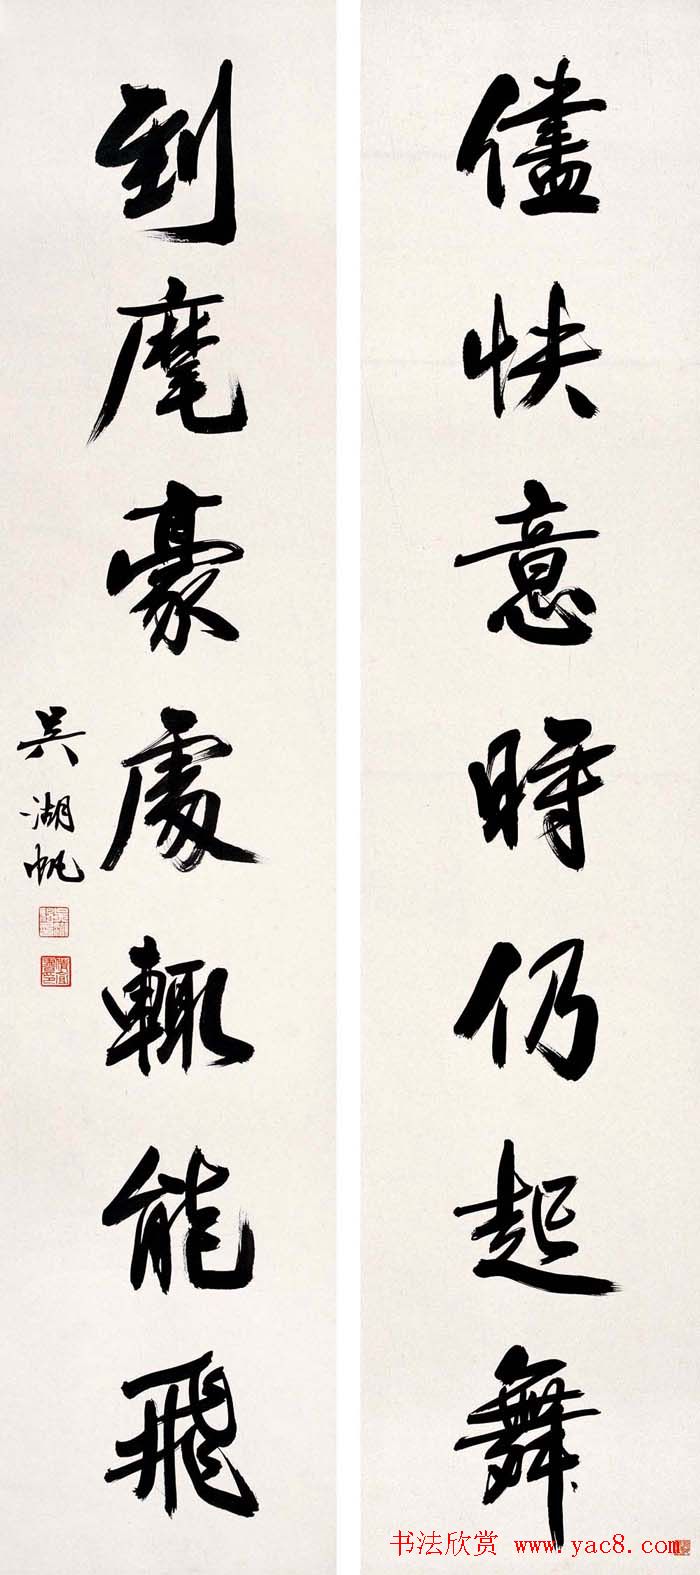 儘快意時仍起舞
到麾豪處輒能飛
吴湖帆
书法欣赏 www.yac8.com